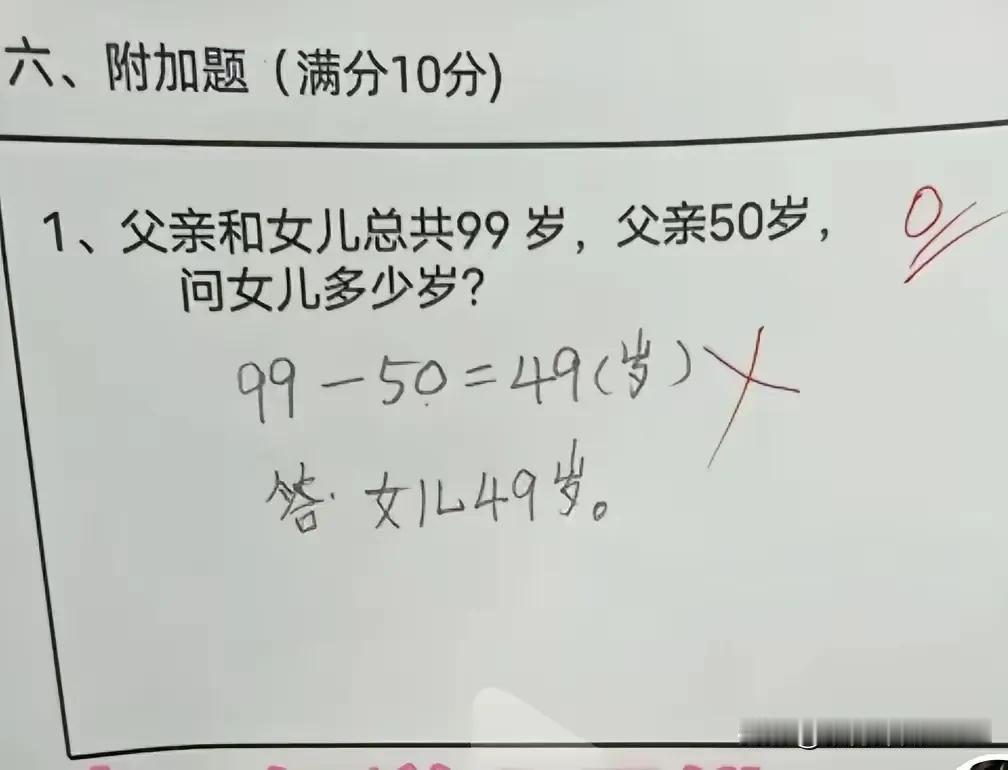 六、附加题（满分10分)
1、父亲和女儿总共99 岁，父亲50岁，
问女儿多少岁？
0
99－50＝49(岁)
答·女儿49岁。